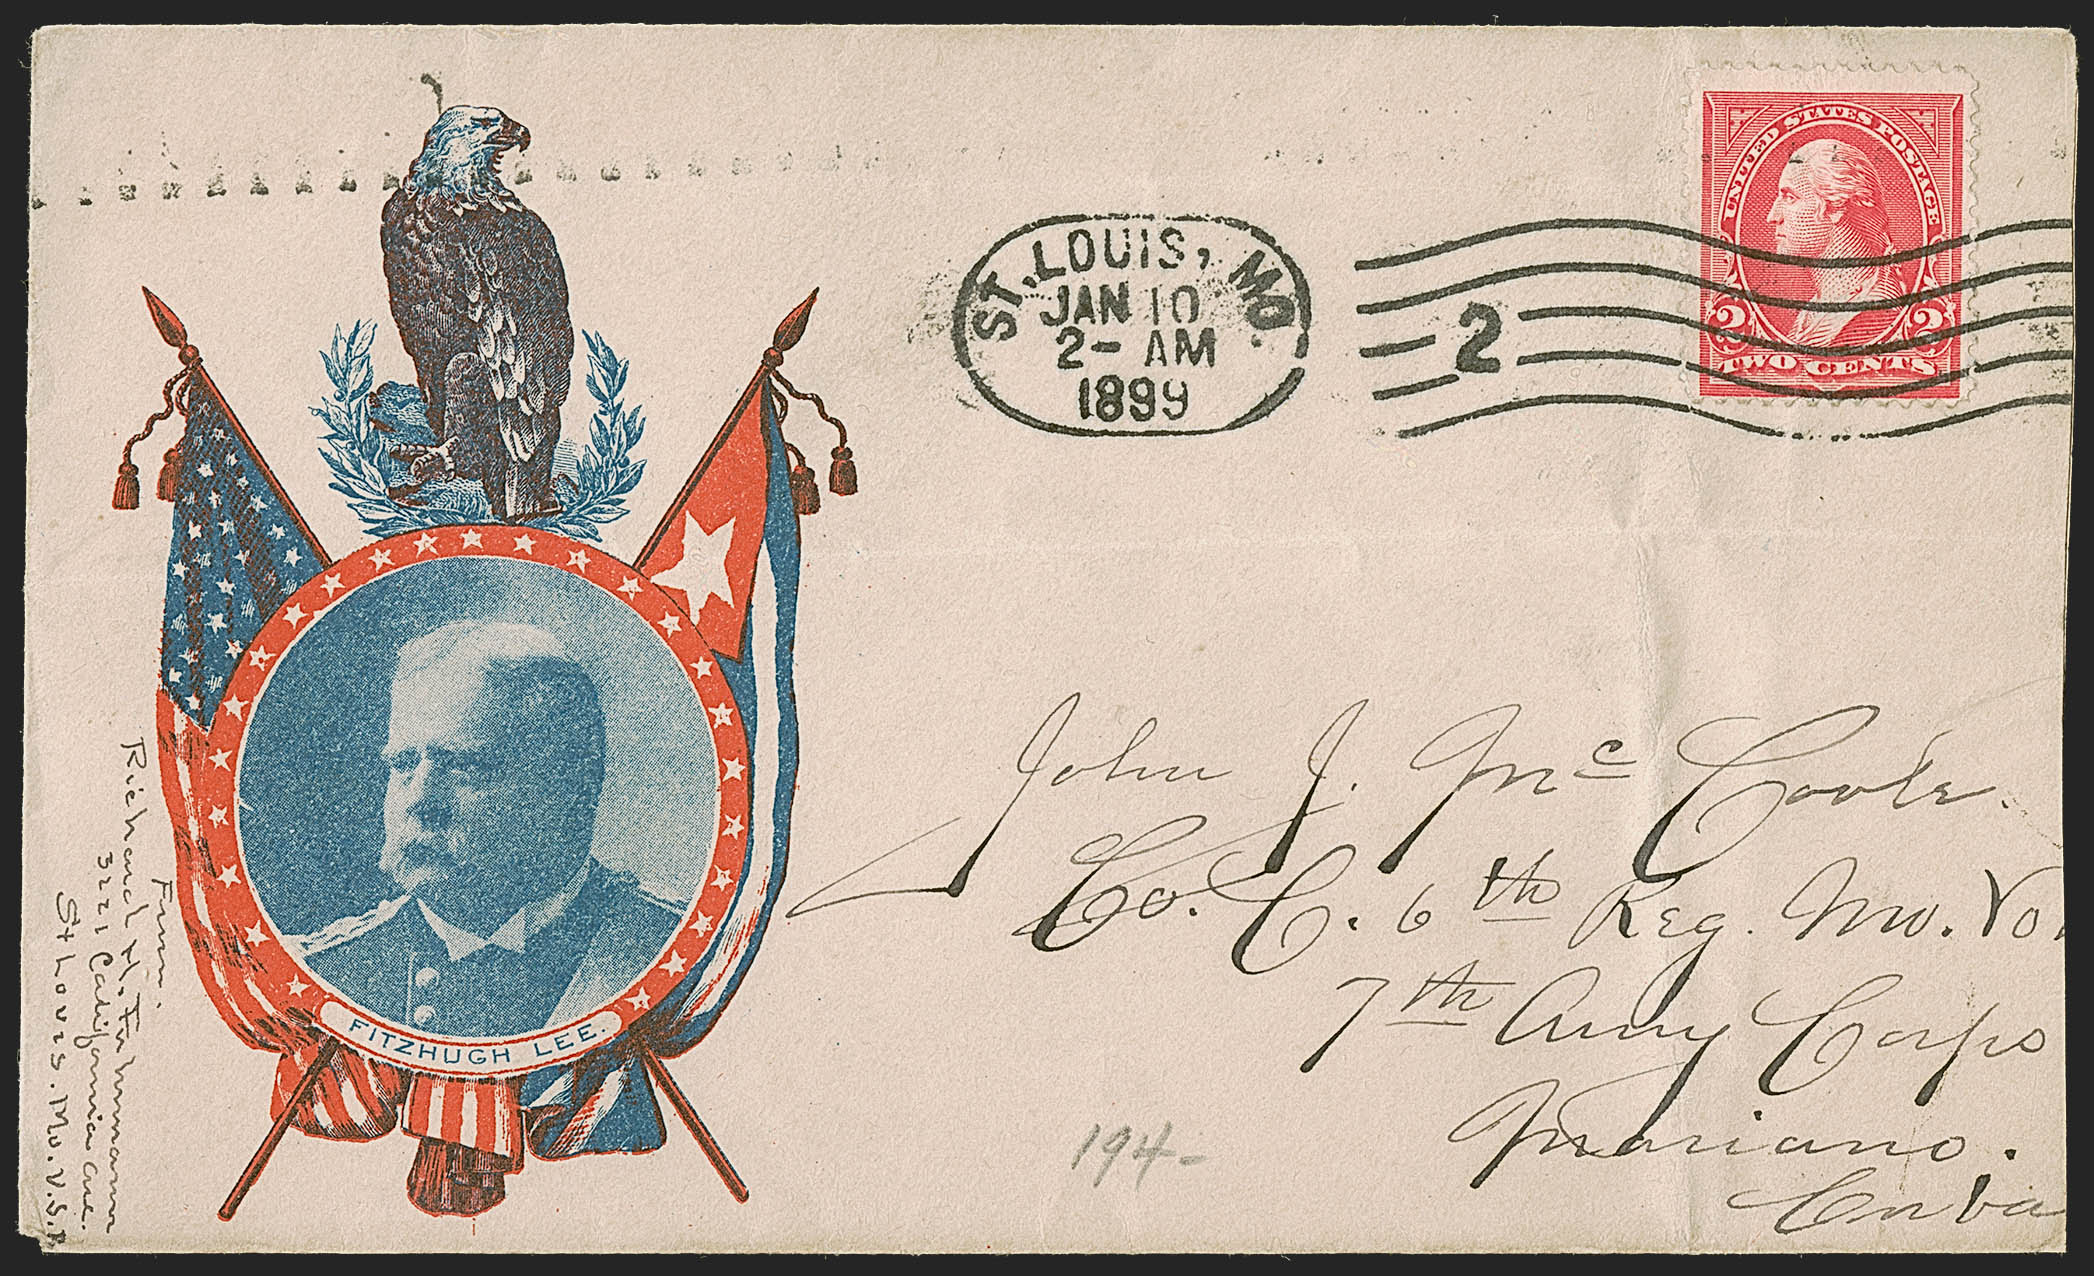 UNITED STATES POSTAGE
2 2
TWO CENTS
ST. LOUIS, MO.
JAN 10
2- AM
1899
2
FITZHUGH LEE.
John J. Mc Coole.
Co. C. 6th Reg. Mo. Vo
7th Army Corps
Mariano.
Cuba
194-
From.
Richard H. Fuhrmann
3221 California ave.
St Louis. Mo. U.S.